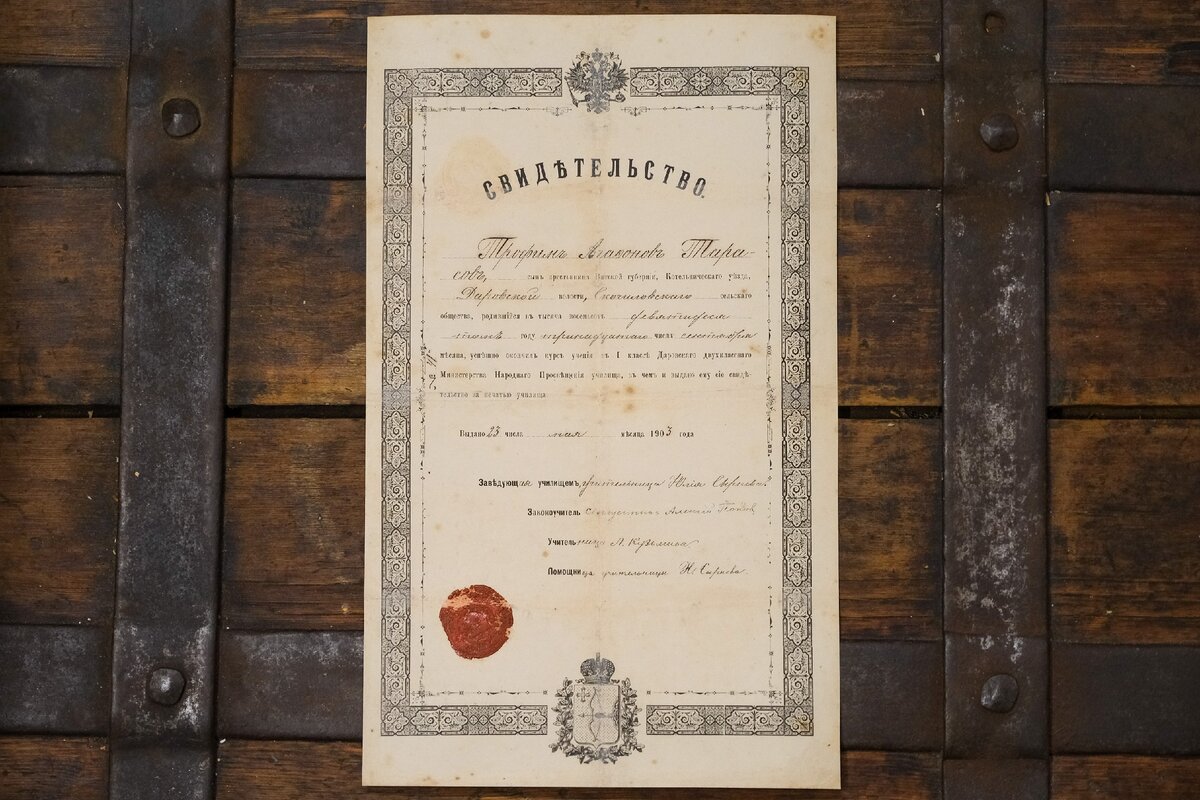 СВИДѢТЕЛЬСТВО.
Трофимъ Агаѳоновъ Тара-
совъ, сынъ крестьянина Вятской губерніи, Котельническаго уѣзда,
Даровской волости, Скочиловскаго сельскаго
общества, родившійся въ тысяча восемьсотъ девяносто
году тринадцатаго числа сентября
мѣсяца, успѣшно окончилъ курсъ ученія въ I классѣ Даровскаго двухкласснаго
Министерства Народнаго Просвѣщенія училища, въ чемъ и выдано ему сіе свидѣ-
тельство за печатью училища.
Выдано 23 числа мая мѣсяца 1903 года
Завѣдующая училищемъ, учительница Юлія Сырнева.
Законоучитель священникъ Алексій Поповъ
Учительница А. Кузьмина
Помощница учительницы Н. Сырнева